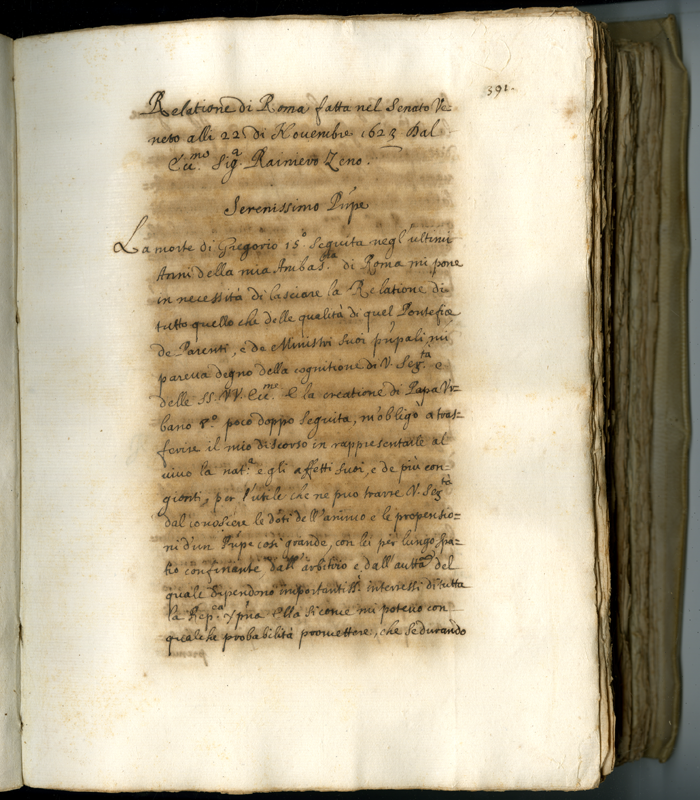 391.
Relatione di Roma fatta nel Senato Ve=
neto alli 22 di Novembre 1623 Dal
Ecc.mo Sig.r Rainiero Zeno.
Serenissimo Prĩpe
La morte di Gregorio 15.º seguita negl'ultimi
Anni della mia Ambas.ta di Roma mi pone
in necessità di lasciare la Relatione di
tutto quello che delle qualità di quel Pontefice
de Parenti, e de Ministri suoi prĩpali mi
pareva degno della cognitione di V. Ser.ta e
delle SS. VV. Ecc.me E la creatione di Papa Vr=
bano 8.º poco doppo seguita, m'obligò a tras=
ferire il mio discorso in rappresentarle al
vivo la nat.a e gli affetti suoi, e de più con=
gionti, per l'utile che ne può trarre V. Ser.tà
dal conoscere le doti dell'animo e le propensio=
ni d'un Prĩpe così grande, con lei per lungo spa=
tio confinante dall'arbitrio e dall'autt.à del
quale dipendono importantiss.i interessi di tutta
la Rep.ca Xpĩna Ella sicome mi potevo con
qualche probabilità promettere, che se durando